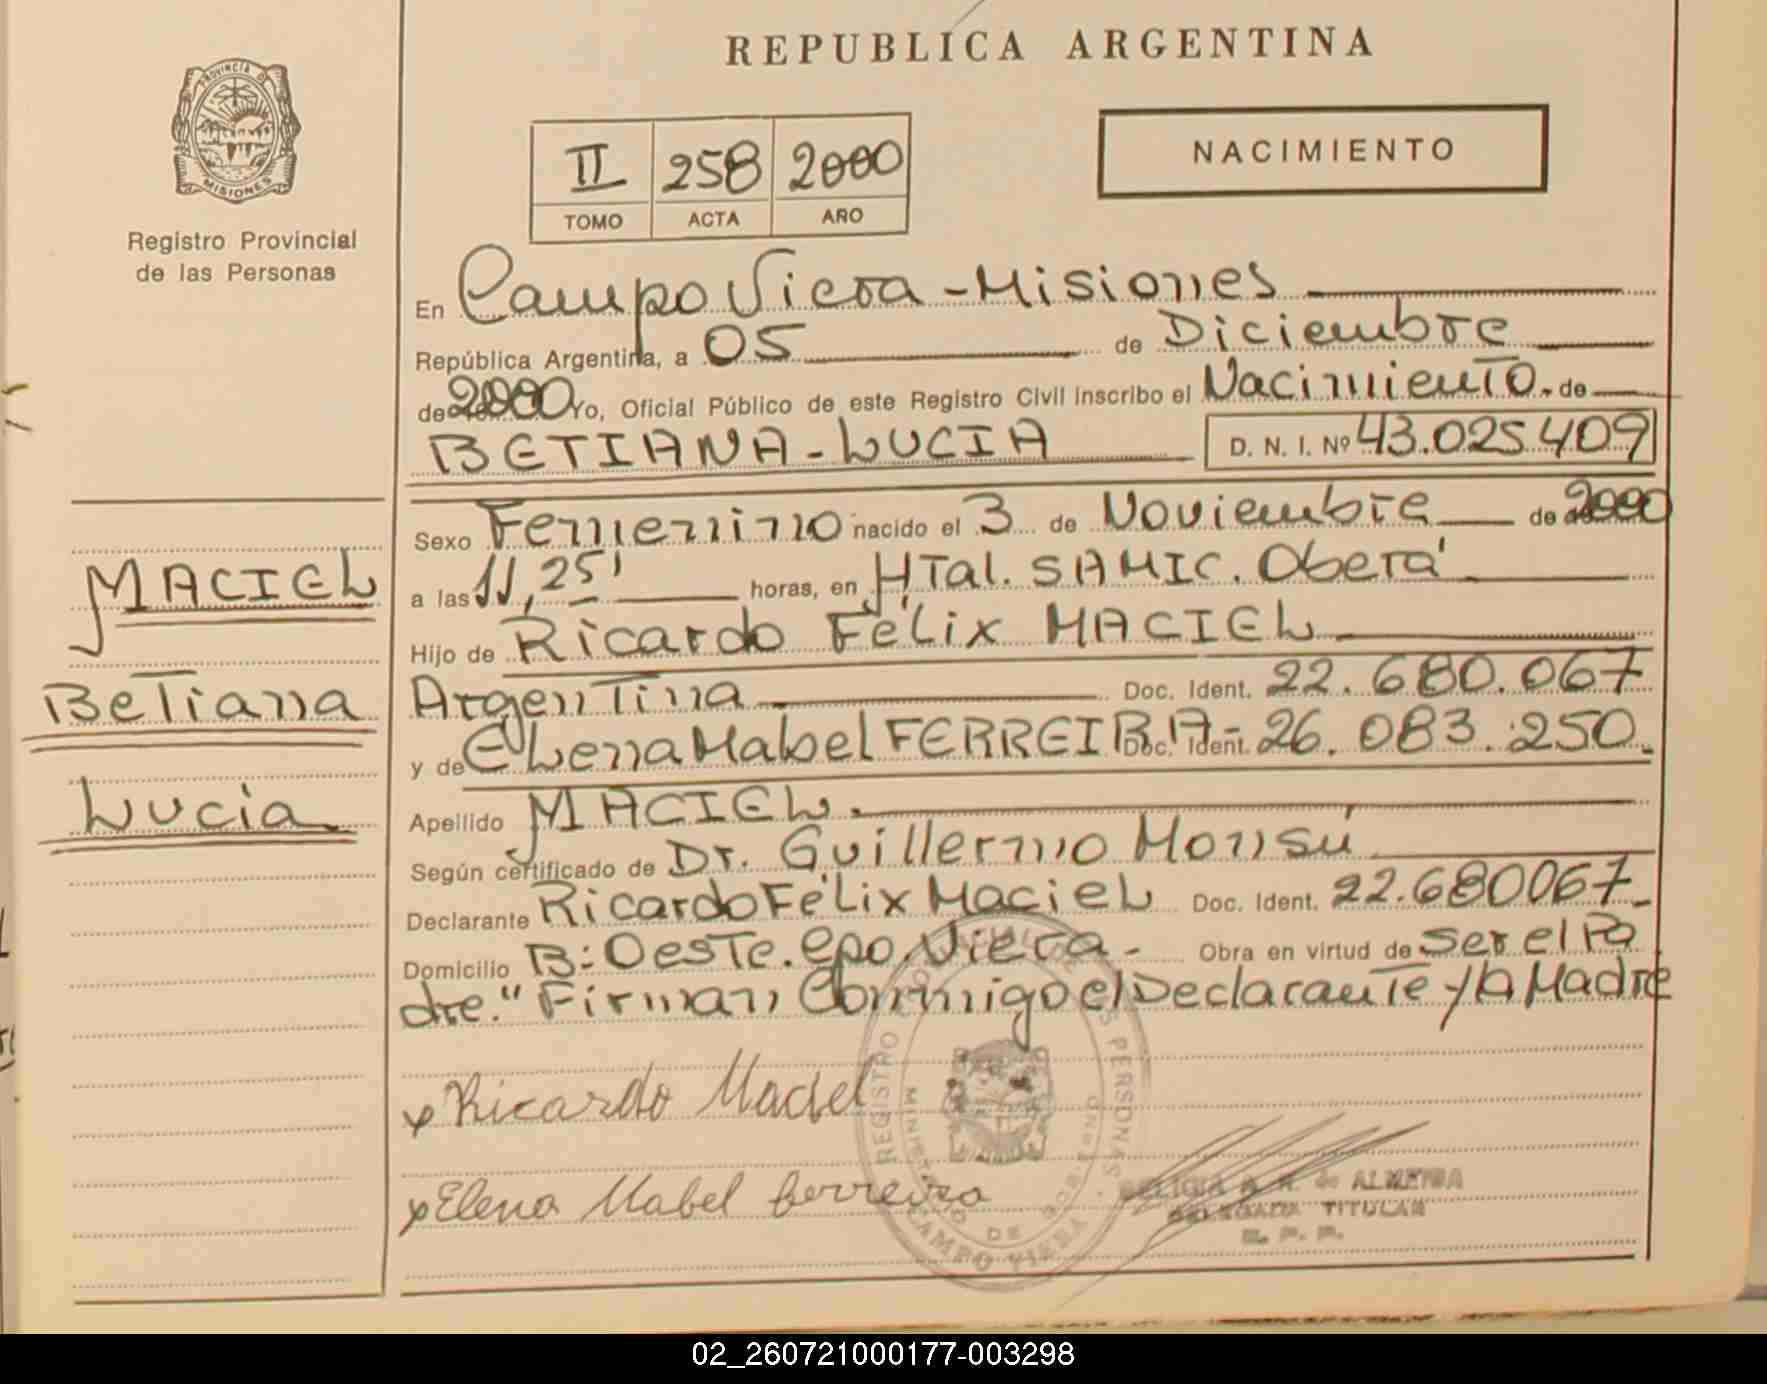 REPUBLICA ARGENTINA
PROVINCIA DE
MISIONES
Registro Provincial
de las Personas
II 258 2000
TOMO ACTA AÑO
NACIMIENTO
En Campo Viera - Misiones
República Argentina, a 05 de Diciembre
de 2000 Yo, Oficial Público de este Registro Civil inscribo el Nacimiento. de
BETIANA - LUCIA D. N. I. Nº 43.025.409
Sexo Femenino nacido el 3 de Noviembre de 2000
a las 11,25' horas, en HTal. SAMIC. Oberá
Hijo de Ricardo Félix MACIEL
Argentina Doc. Ident. 22.680.067
y de Elena Mabel FERREIRA - Doc. Ident. 26.083.250.
Apellido MACIEL.
Según certificado de Dr. Guillermo Monsú
Declarante Ricardo Félix Maciel Doc. Ident. 22.680067
Domicilio B: Oeste. Cpo. Viera - Obra en virtud de ser el Pa
dre." Firman Conmigo el Declarante y la Madre
MACIEL
Betiana
Lucia
x Ricardo Maciel
x Elena Mabel Ferreira
REGISTRO PROVINCIAL DE LAS PERSONAS
MINISTERIO DE GOB.
CAMPO VIERA
de ALMEIDA
DELEGADA TITULAR
R. P. P.
02_260721000177-003298